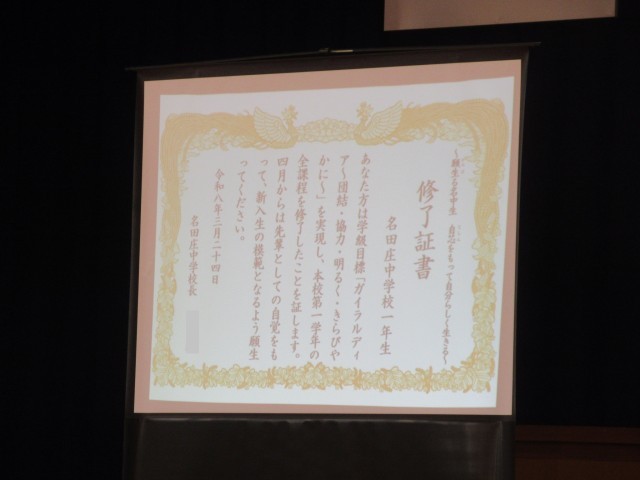 ～願生る名中生　自心をもって自分らしく生きる～
修了証書
名田庄中学校一年生
あなた方は学級目標「ガイラルディ
ア～団結・協力・明るく・きらびや
かに～」を実現し、本校第一学年の
全課程を修了したことを証します。
四月からは先輩としての自覚をも
って、新入生の模範となるよう願生
ってください。
令和八年三月二十四日
名田庄中学校長